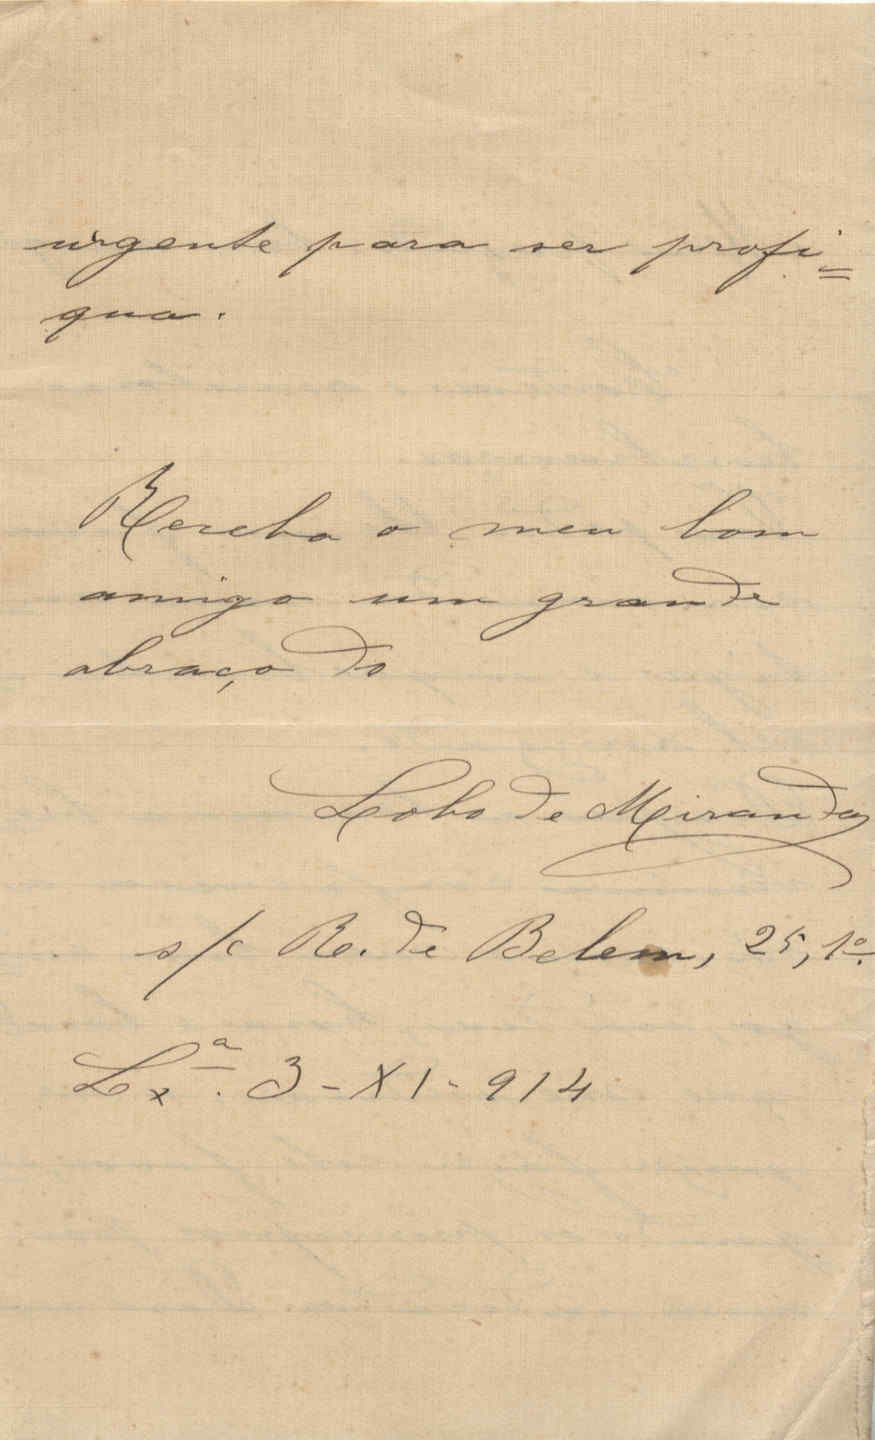 urgente para ser profi=
qua.
Receba o meu bom
amigo um grande
abraço do
Lobo de Miranda
s/c R. de Belem, 25, 1º.
Lxª. 3-XI-914